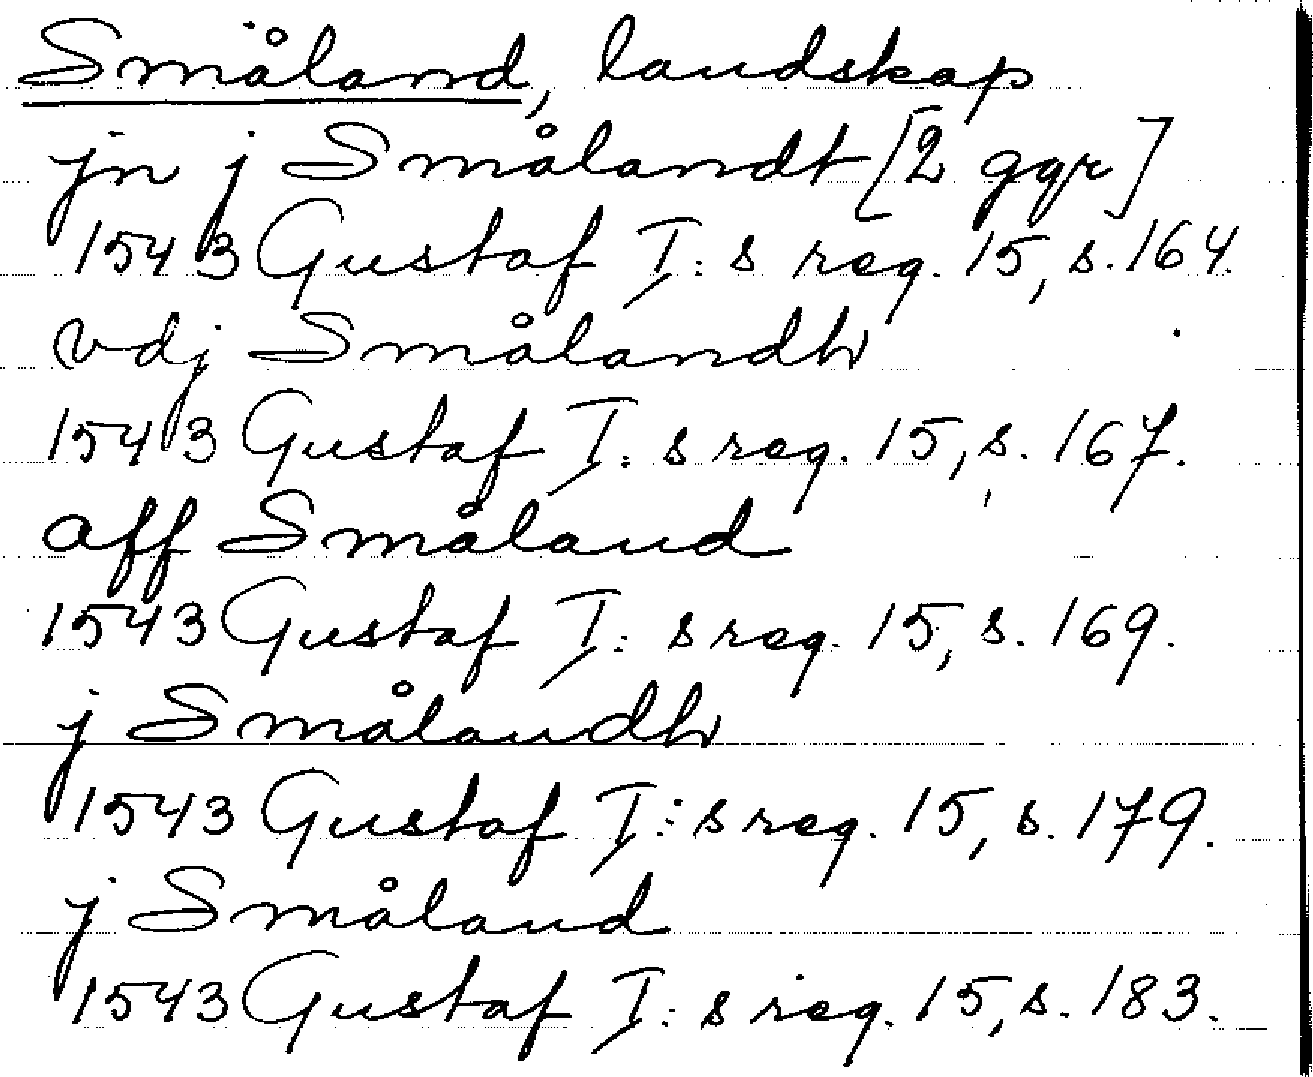 Småland, landskap
jn j Smålandt [2 ggr]
1543 Gustaf I: s reg. 15, s. 164.
vdj Smålandh
1543 Gustaf I: s reg. 15, s. 167.
aff Småland
1543 Gustaf I: s reg. 15, s. 169.
j Smålandh
1543 Gustaf I: s reg. 15, s. 179.
j Småland
1543 Gustaf I: s reg. 15, s. 183.